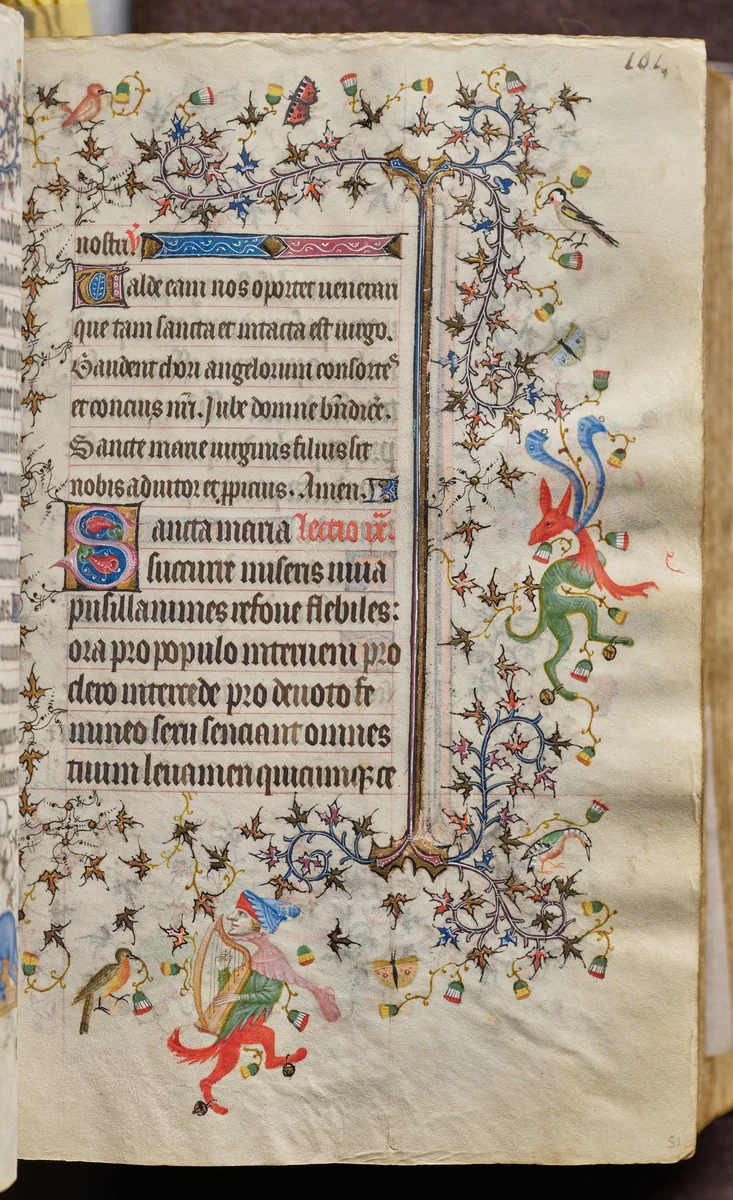 104
nostri v̄
Valde eam nos oportet venerari
que tam sancta et intacta est uirgo.
Gaudent chori angelorum consortes
et conciuis nr̄i. Iube domne bn̄dicē.
Sancte marie uirginis filius sit
nobis adiutor et ꝓpicius. Amen.
Sancta maria Lectio ix.
succurre miseris iuua
pusillanimes refoue flebiles:
ora pro populo interueni pro
clero intercede pro deuoto fe
mineo sexu senciant omnes
tuum leuamen quicumqꝫ ce
51